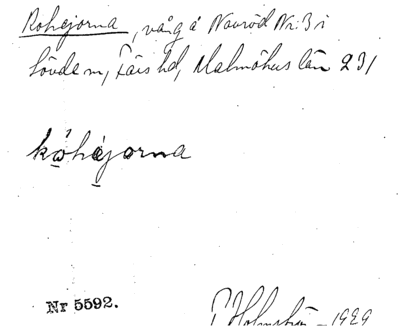 Rohejorna, vång å Navröd Nr. 3 i
Lövde sn, Färs hd, Malmöhus län 231
kóhéjorna
Nr 5592.
Holmström 1929